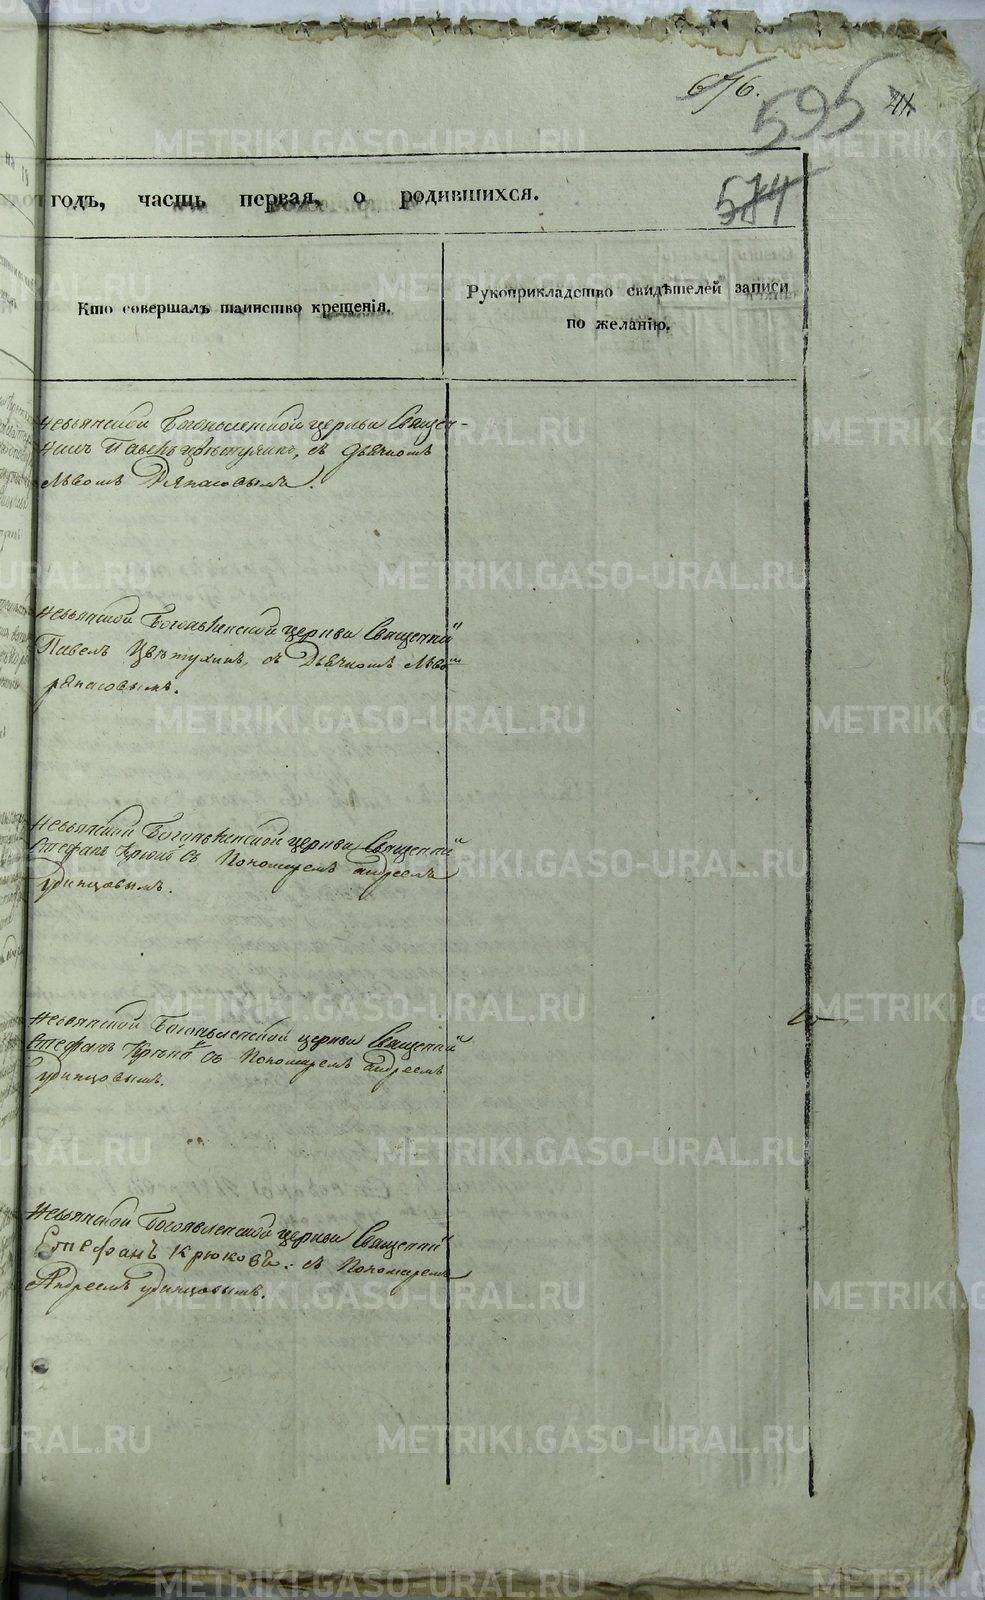 676.
595
41.
574
годъ, часть первая, о родившихся.
Кто совершалъ таинство крещенія.
Рукоприкладство свидѣтелей записи
по желанію.
Невьянской Богоявленской церкви Священ-
никъ Павелъ Цвѣтухинъ, съ Дьячкомъ
Львомъ Ряпасовымъ.
Невьянской Богоявленской церкви Священни
Павелъ Цвѣтухинъ, съ Дьячкомъ Львомъ
Ряпасовымъ.
Невьянской Богоявленской церкви Священни
Стефанъ Крюко съ Пономаремъ Андреемъ
Удинцовымъ.
Невьянской Богоявленской церкви Священни
Стефанъ Крюко съ Пономаремъ Андреемъ
Удинцовымъ.
Невьянской Богоявленской церкви Священни
Стефанъ Крюковъ. съ Пономаремъ
Андреемъ Удинцовымъ.
METRIKI.GASO-URAL.RU